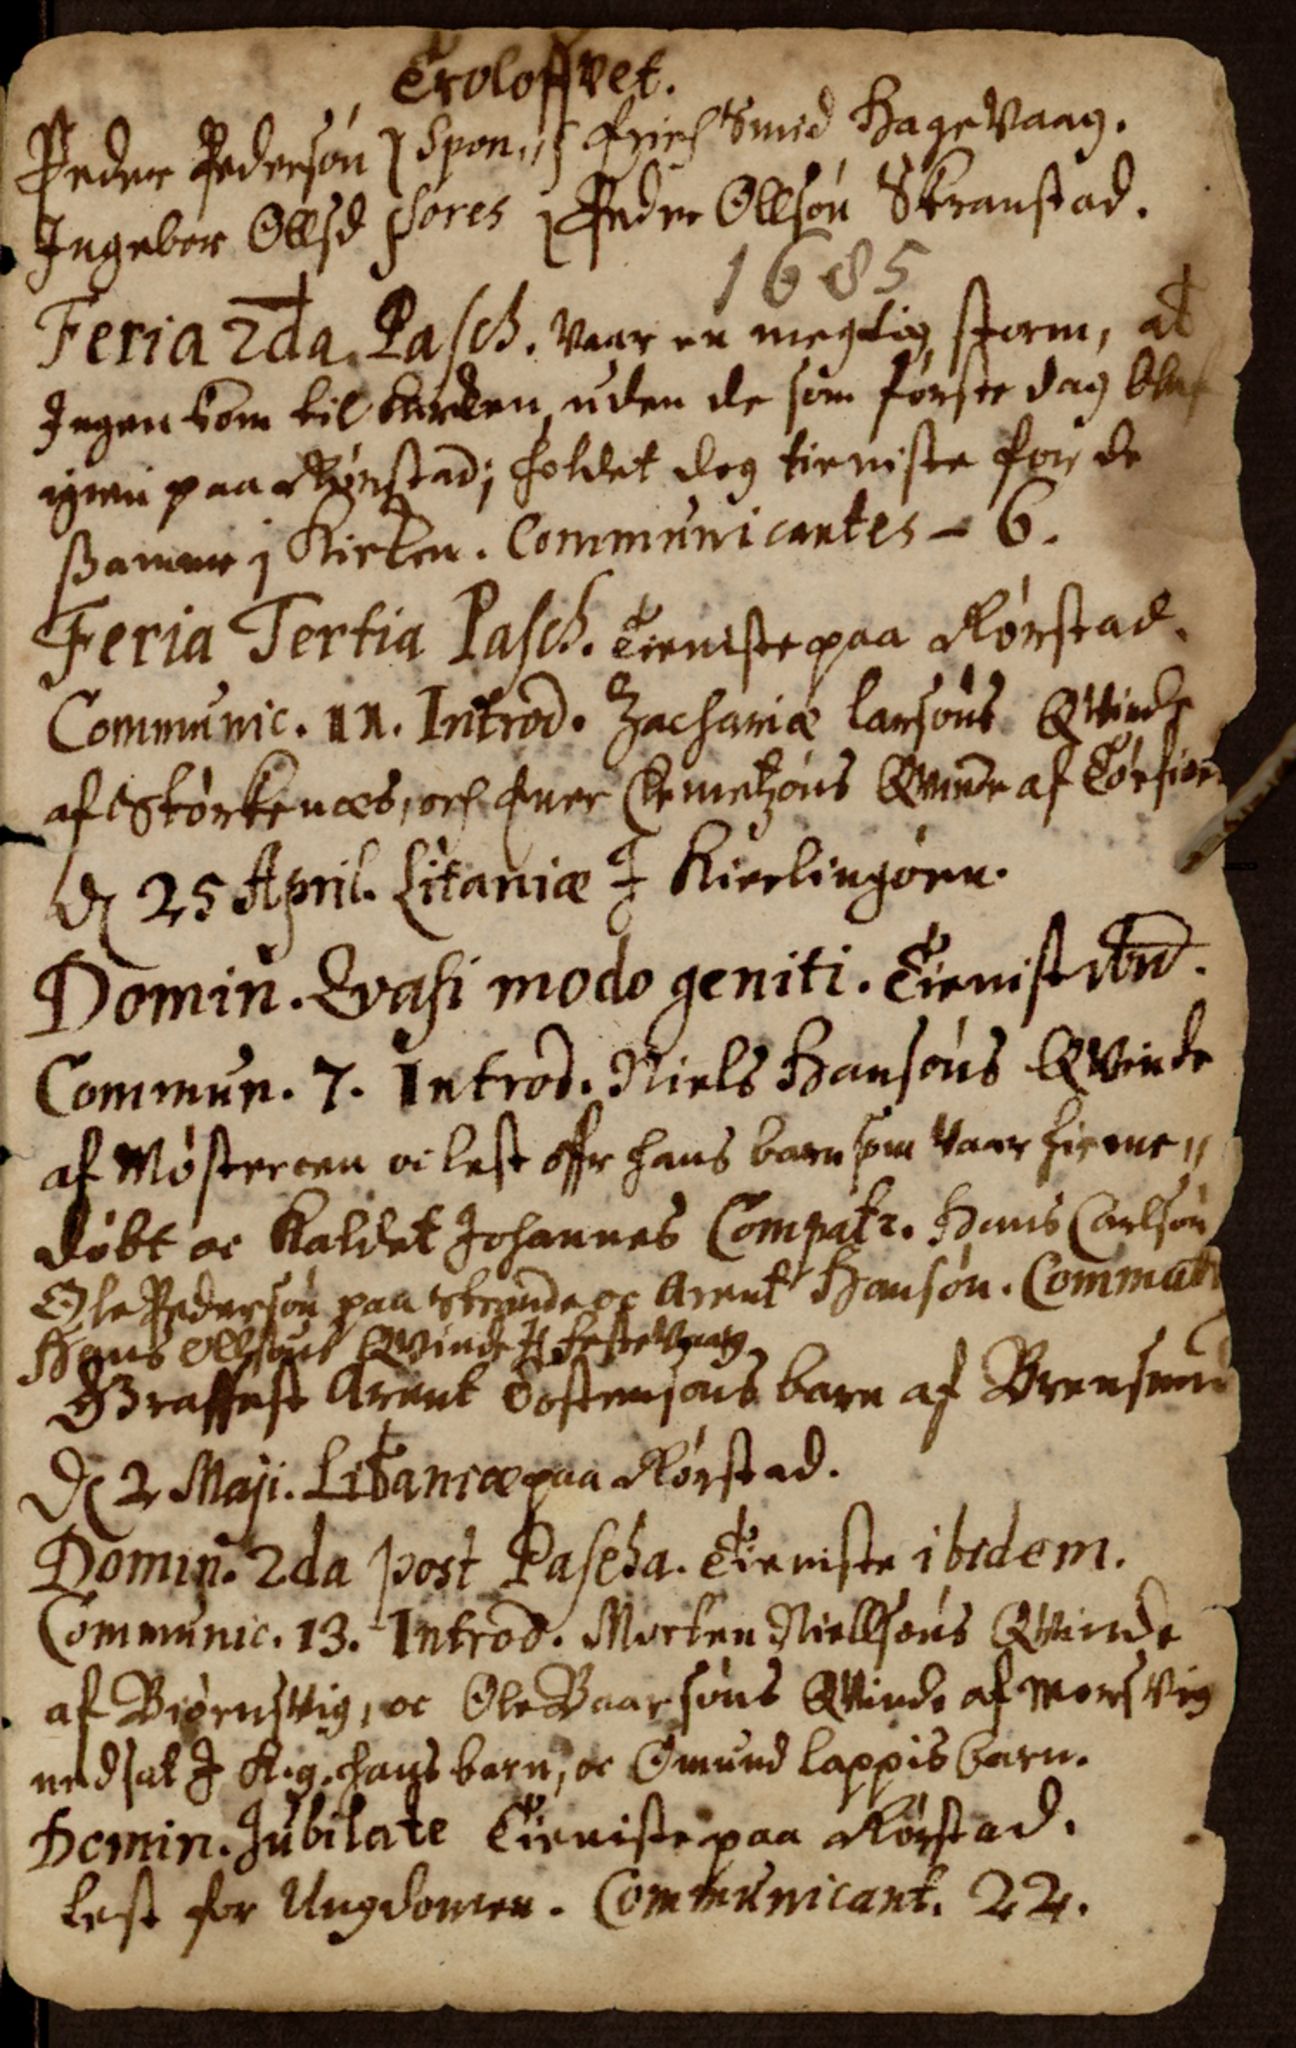 Troloffvet.
Peder Pedersøn } Spon,, { Erich Smid Hagevaag.
Ingebor Ollsd } sores { Peder Ollsøn Skranstad.
1685
Feria 2da. Pasch. vaar en megtig storm, at
Ingen kom til kircken uden de som første dag blef
igien paa Rørstad; holdet dog tieniste for de
samme j Kirken. Communicantes - 6.
Feria Tertia Pasch. Tieniste paa Rørstad.
Communic. 11. Introd. Zachariæ Larsøns Qvinde
af Størkenæs, och Clemetzøns Qvinde af
D 25 April. Litaniæ I Kierlingøen.
Domin. Qvasi modo geniti. Tienist ibid.
Commun. 7. Introd. Niels Hansøns Qvinde
af Møsterøen oc lest offr hans barn som vaar hieme,,
døbt oc kaldet Johannes Compatr. Hans Carlsøn
Ole Pedersøn paa Strande oc Arent Hansøn. Commatr
Hans Ollsøns Qvinde Festevaag
Graffest Arent Tostensøns barn af
D 2 Maji. Litaniæ paa Rørstad.
Domin. 2da post Pascha. Tieniste ibidem.
Communic. 13. Introd. Morten Niellsøns Qvinde
af Biørnsvig, oc Ole Baarsøns Qvinde af Morsvig
nedsat I K.g. hans barn, oc Omund lappis barn.
Domin. Jubilate Tieniste paa Rørstad.
Lest for Ungdomen. Communicant. 22.